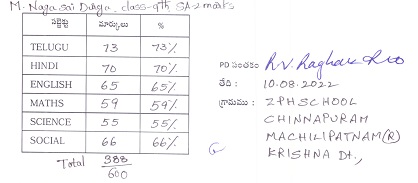 M. Naga sai Durga, class-9th, SA-2 marks
సబ్జెక్టు మార్కులు %
TELUGU 73 73%
HINDI 70 70%
ENGLISH 65 65%
MATHS 59 59%
SCIENCE 55 55%
SOCIAL 66 66%
Total 388
600
PD సంతకం : R.V. Raghava Rao
తేది : 10.08.2022
గ్రామము : ZPHSCHOOL
CHINNAPURAM
MACHILIPATNAM(R)
KRISHNA Dt.,